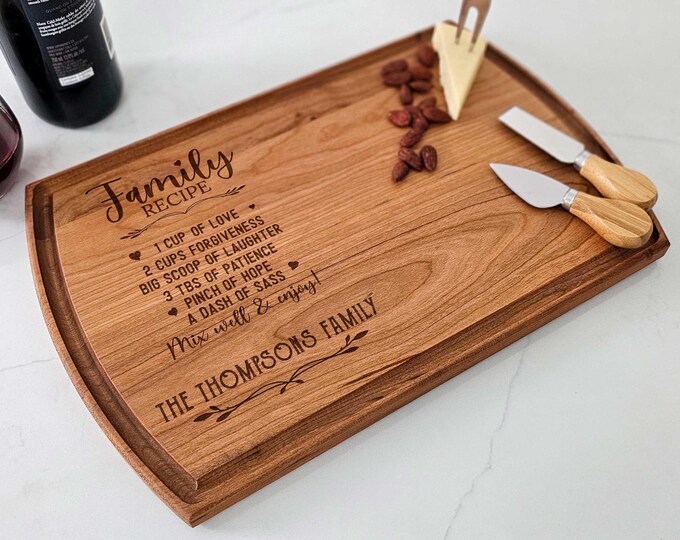 Family
RECIPE
1 CUP OF LOVE
2 CUPS FORGIVENESS
BIG SCOOP OF LAUGHTER
3 TBS OF PATIENCE
PINCH OF HOPE
A DASH OF SASS
Mix well & enjoy!
THE THOMPSONS FAMILY